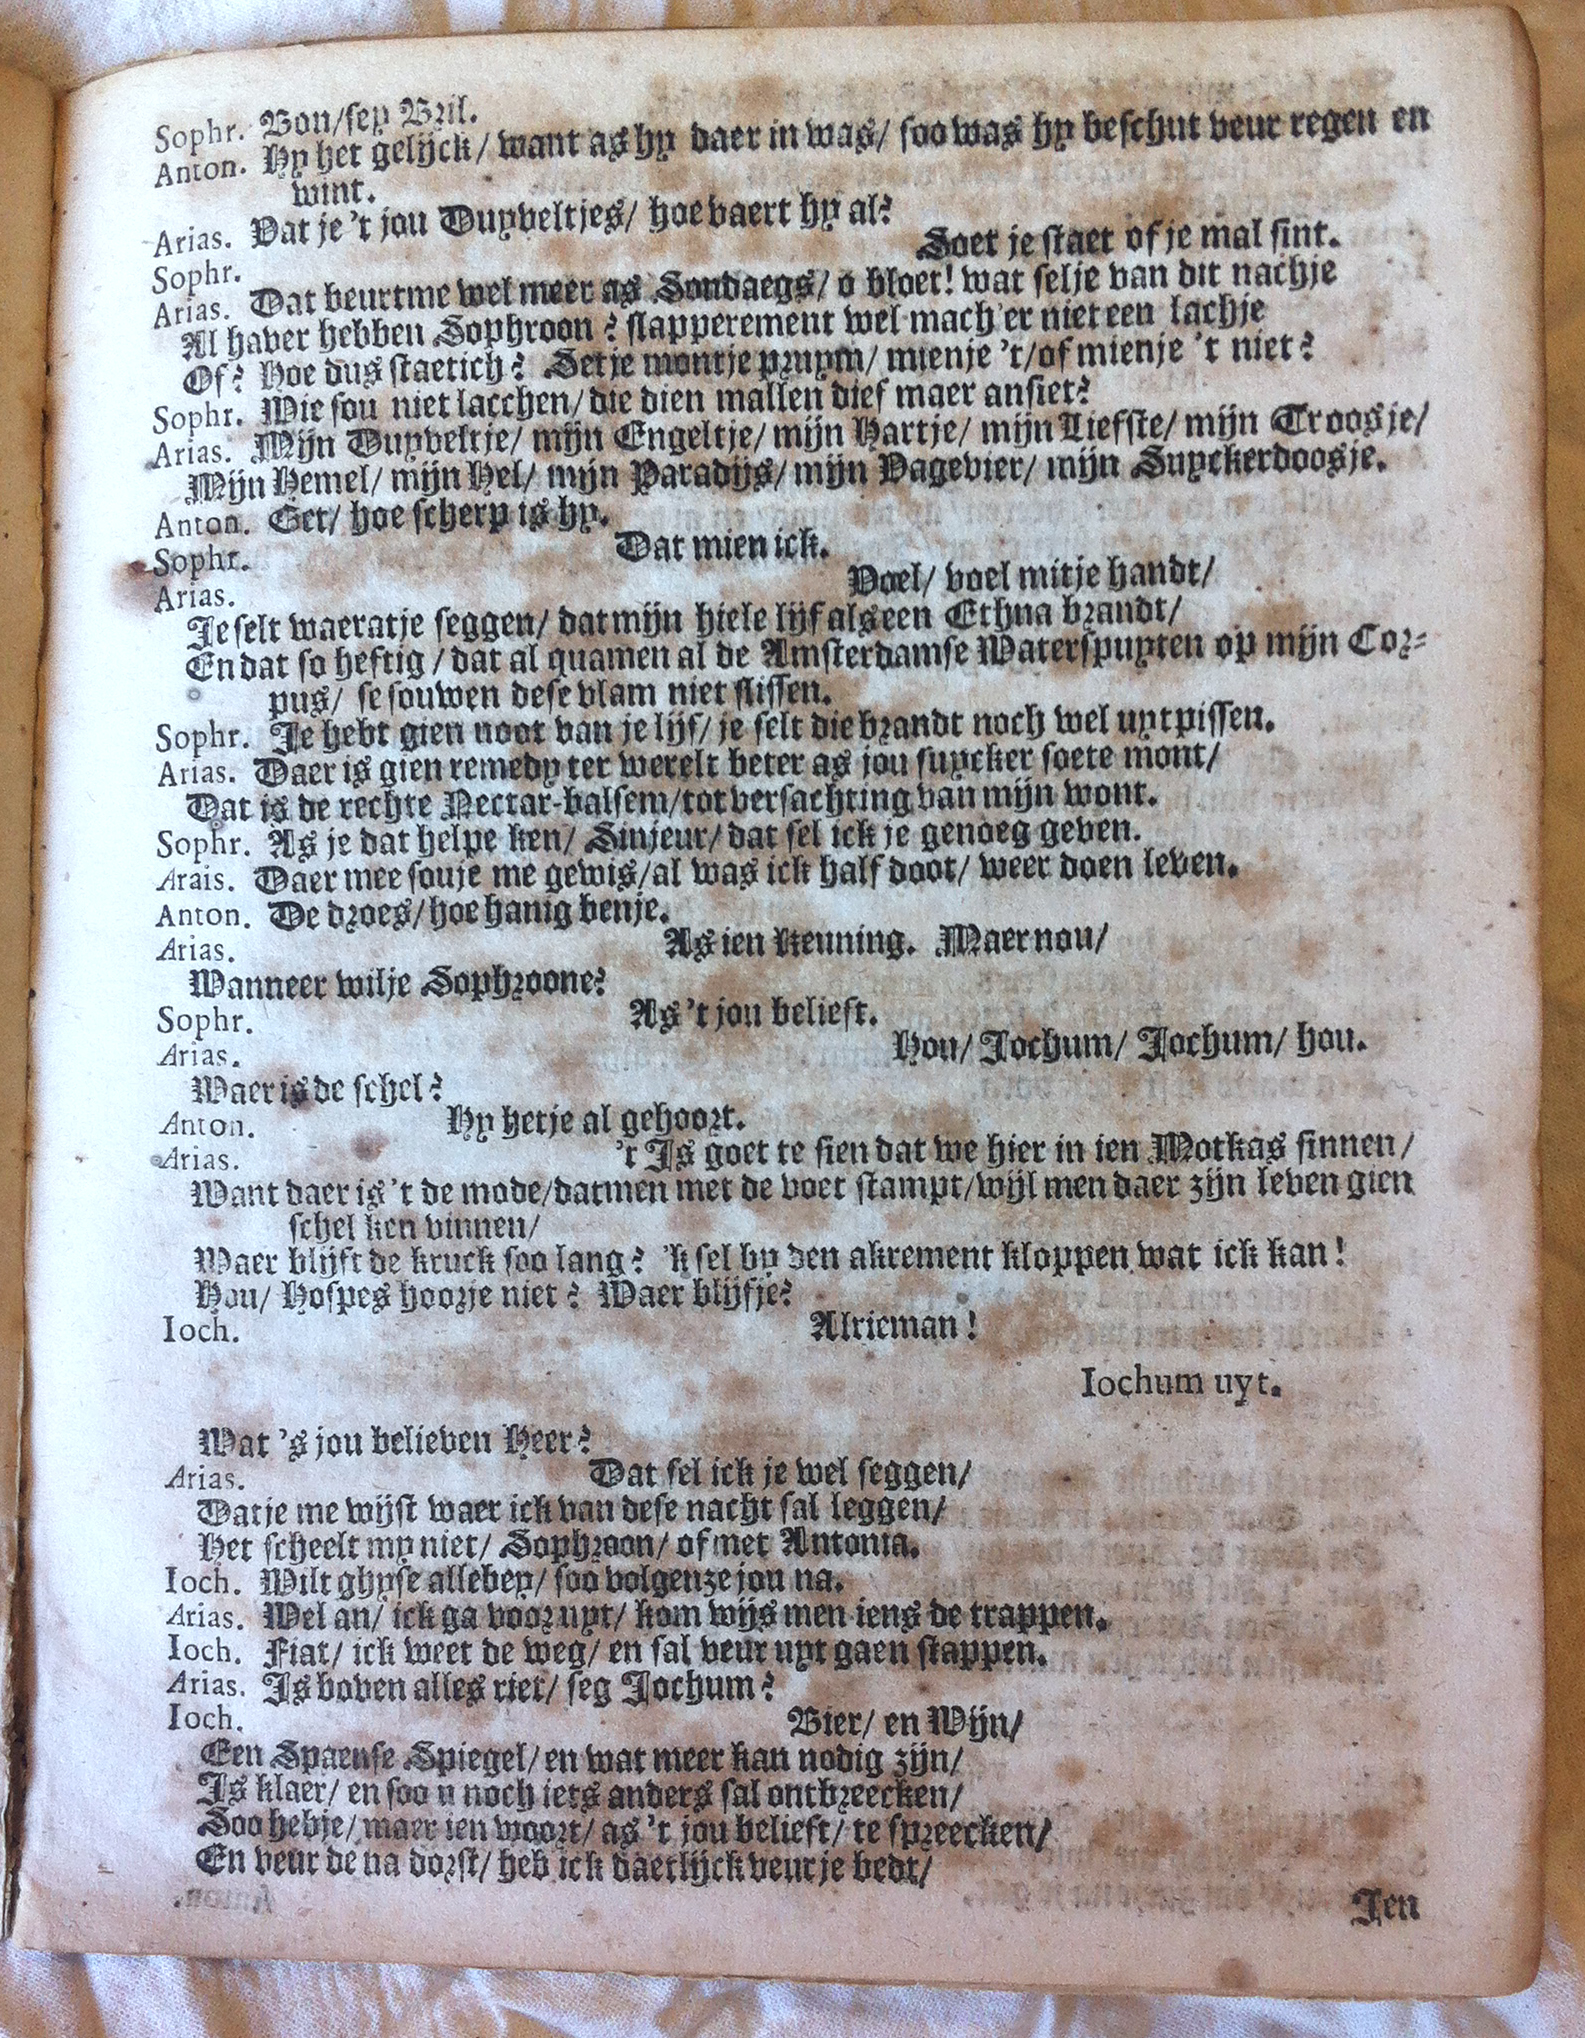 Sophr. Bon/sey Bril.
Anton. Hy het gelijck/ want as hy daer in was/ soo was hy beschut veur regen en
wint.
Arias. Dat je 't jou Duyveltjes/ hoe vaert hy al?
Sophr. Soet je staet of je mal sint.
Arias. Dat beurtme wel meer as Sondaegs/ o bloet! wat selje van dit nachje
Al haver hebben Sophroon? slapperement wel mach'er niet een lachje
Of? Hoe dus staetich? Set je montje pruym/ mienje 't/ of mienje 't niet?
Sophr. Wie sou niet lacchen/ die dien mallen dief maer ansiet?
Arias. Mijn Duyveltje/ mijn Engeltje/ mijn Hartje/ mijn Liefste/ mijn Troosje/
Mijn Hemel/ mijn Hel/ mijn Paradijs/ mijn Vagevier/ mijn Suyckerdoosje.
Anton. Get/ hoe scherp is hy.
Sophr. Dat mien ick.
Arias. Voel/ voel mitje handt/
Je selt waeratje seggen/ dat mijn hiele lijf als een Ethna brandt/
En dat so heftig/ dat al quamen al de Amsterdamse Waterspuyten op mijn Cor-
pus/ se souwen dese vlam niet slissen.
Sophr. Je hebt gien noot van je lijf/ je selt die brandt noch wel uyt pissen.
Arias. Daer is gien remedy ter werelt beter as jou suycker soete mont/
Dat is de rechte Nectar-balsem/ tot versachting van mijn wont.
Sophr. As je dat helpe ken/ Sinjeur/ dat sel ick je genoeg geven.
Arais. Daer mee souje me gewis/ al was ick half doot/ weer doen leven.
Anton. De droes/ hoe hanig benje.
Arias. As ien Keuning. Maer nou/
Wanneer wilje Sophroone?
Sophr. As 't jou belieft.
Arias. Hou/ Jochum/ Jochum/ hou.
Waer is de schel?
Anton. Hy hetje al gehoort.
Arias. 't Is goet te sien dat we hier in ien Motkas sinnen/
Want daer is 't de mode/ datmen met de voet stampt/ wijl men daer zijn leven gien
schel ken vinnen/
Waer blijft de kruck soo lang? 'k sel by den akrement kloppen wat ick kan!
Hou/ Hospes hoorje niet? Waer blijfje?
Ioch. Alrieman!
Iochum uyt.
Wat 's jou believen Heer?
Arias. Dat sel ick je wel seggen/
Datje me wijst waer ick van dese nacht sal leggen/
Het scheelt my niet/ Sophroon/ of met Antonia.
Ioch. Wilt ghyse allebey/ soo volgenze jou na.
Arias. Wel an/ ick ga vooruyt/ kom wijs men iens de trappen.
Ioch. Fiat/ ick weet de weg/ en sal veur uyt gaen stappen.
Arias. Is boven alles riet/ seg Jochum?
Ioch. Bier/ en Wijn/
Een Spaense Spiegel/ en wat meer kan nodig zijn/
Is klaer/ en soo u noch iets anders sal ontbreecken/
Soo hebje/ maer ien woort/ as 't jou belieft/ te spreecken/
En veur de na dorst/ heb ick daetlijck veur je bedt/
Ien